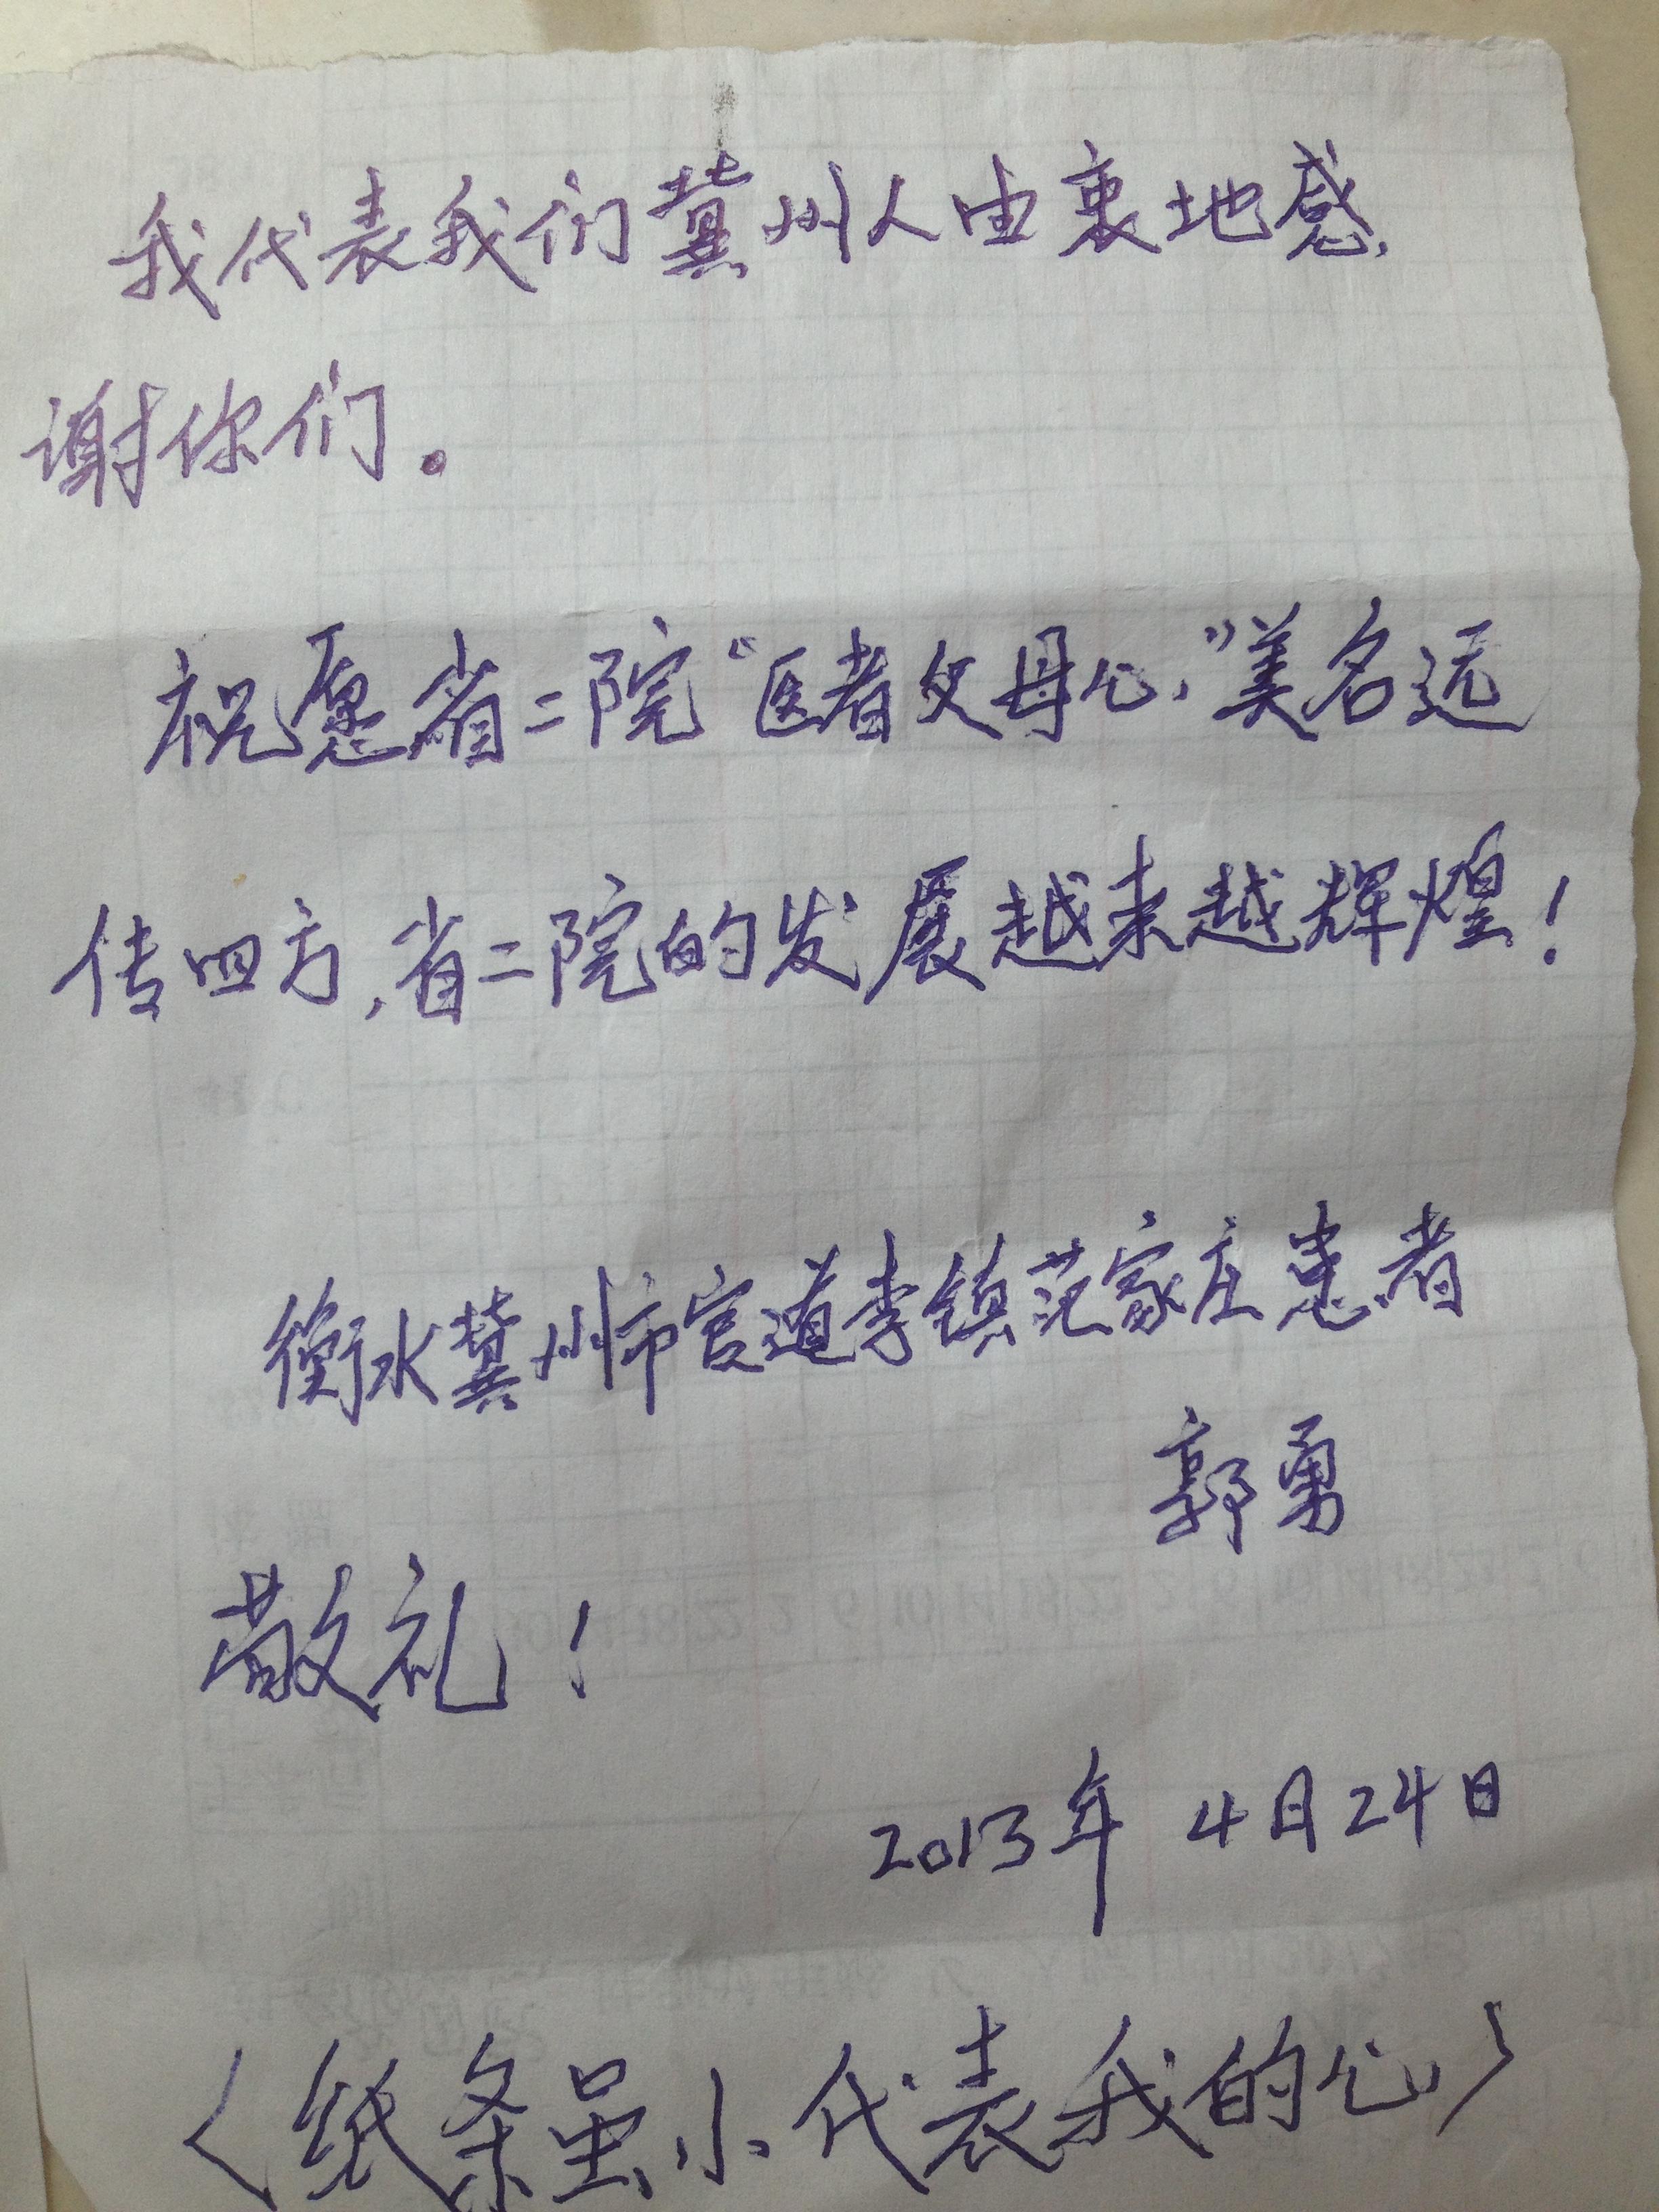 我代表我们冀州人由衷地感
谢你们。
祝愿省二院“医者父母心”美名远
传四方,省二院的发展越来越辉煌!
衡水冀州市官道李镇范家庄患者
郭勇
敬礼!
2013年 4月24日
〈纸条虽小代表我的心〉